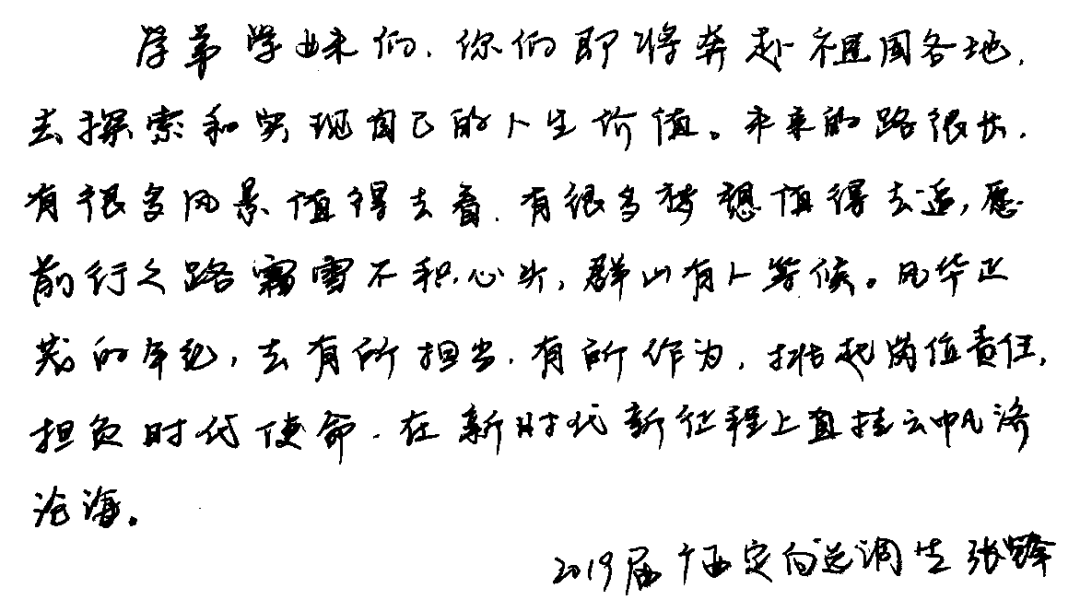 学弟学妹们，你们即将奔赴祖国各地，
去探索和实现自己的人生价值。未来的路很长，
有很多风景值得去看，有很多梦想值得去追，愿
前行之路霜雪不积心头，群山有人等候。风华正
茂的年纪，去有所担当，有所作为，挑起岗位责任，
担负时代使命，在新时代新征程上直挂云帆济
沧海。
2019届广西定向选调生 张锋